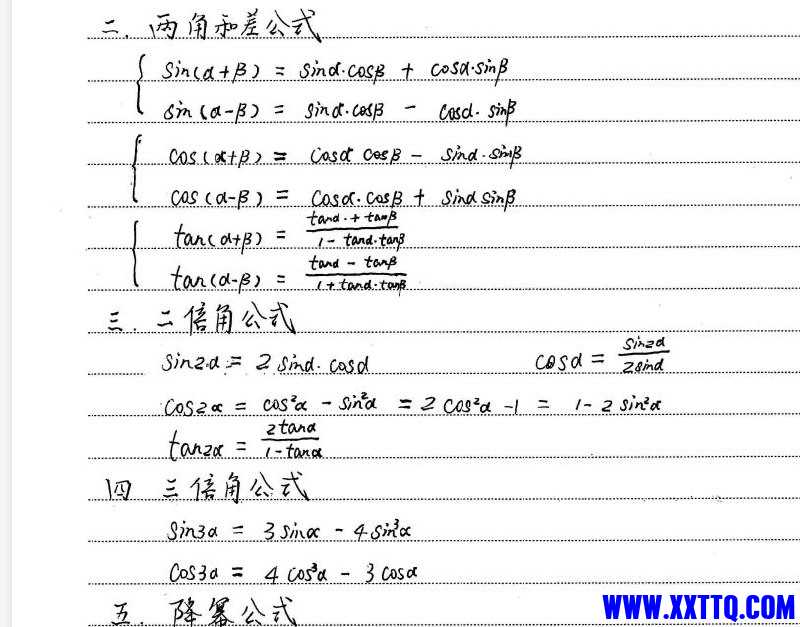 二. 两角和差公式
sin(α+β) = sinα·cosβ + cosα·sinβ
sin(α-β) = sinα·cosβ - cosα·sinβ
cos(α+β) = cosα cosβ - sinα·sinβ
cos(α-β) = cosα·cosβ + sinα sinβ
tan(α+β) = (tanα·+tanβ)/(1-tanα·tanβ)
tan(α-β) = (tanα-tanβ)/(1+tanα·tanβ)
三. 二倍角公式
sin2α = 2 sinα·cosα cosα = sin2α/2sinα
cos2α = cos²α - sin²α = 2cos²α - 1 = 1 - 2sin²α
tan2α = 2tanα/(1-tanα)
四 三倍角公式
sin3α = 3sinα - 4sin³α
cos3α = 4cos³α - 3cosα
五. 降幂公式
WWW.XXTTQ.COM